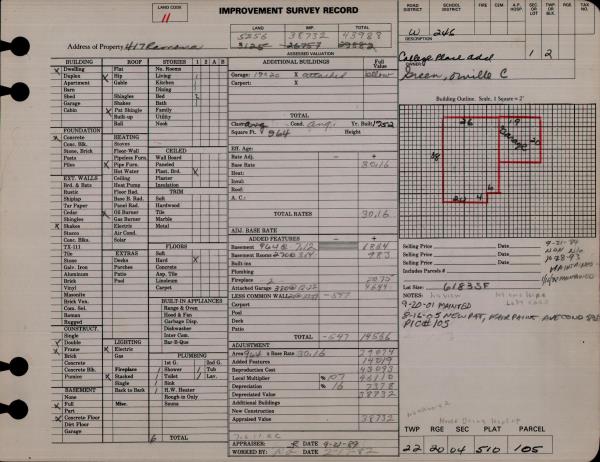 LAND CODE
11
IMPROVEMENT SURVEY RECORD
LAND
5256 38732 43988
3125 26757 29882
ASSESSED VALUATION
Address of Property 417 Ramona
ROAD DISTRICT
SCHOOL DISTRICT
FIRE
CEM
A.P. HOSP.
SEC OR LOT
TWP OR BLK
RGE
TAX NO.
W 246
DESCRIPTION
College Place add 1 2
OWNER
Green, Orville C
BUILDING
Dwelling
Duplex
Apartment
Barn
Shed
Garage
Cabin
FOUNDATION
Concrete
Conc. Blk.
Stone, Brick
Posts
Piles
EXT. WALLS
Brd. & Bats
Rustic
Shiplap
Tar Paper
Cedar
Shingles
Shakes
Stucco
Conc. Blks.
TX-111
Tile
Stone
Galv. Iron
Aluminum
Brick
Vinyl
Masonite
Brick Ven.
Com. Sel.
Roman
Rugged
CONSTRUCT.
Single
Double
Frame
Brick
Concrete
Concrete Blk.
Pumice
BASEMENT
None
Full
Part
Concrete Floor
Dirt Floor
Garage
ROOF
Flat
Hip
Gable
Shingles
Shakes
Pat Shingle
Built-up
Roll
HEATING
Stoves
Floor-Wall
Pipeless Furn.
Pipe Furn.
Hot Water
Ceiling
Heat Pump
Floor Rad.
Base B. Rad.
Panel Rad.
Oil Burner
Gas Burner
Electric
Air Cond.
Solar
EXTRAS
Decks
Porches
Patio
Pool
Carpet
LIGHTING
Electric
Gas
Fireplace
Single
Stacked
Back to Back
Misc.
STORIES 1 2 A B
No. Rooms
Living
Kitchen
Dining
Bed
Bath
Family
Utility
Nook
CEILED
Wall Board
Paneled
Plast. Brd.
Plaster
Insulation
TRIM
Soft
Hardwood
Tile
Marble
Metal
FLOORS
Soft
Hard
Concrete
Asp. Tile
Linoleum
BUILT-IN APPLIANCES
Range & Oven
Hood & Fan
Garbage Disp.
Dishwasher
Inter Com.
Bar-B-Que
PLUMBING
1st G. 2nd G.
Shower Tub
Toilet Lav.
Sink
H.W. Heater
Rough-in Only
Sauna
6 TOTAL
ADDITIONAL BUILDINGS
Full Value
Garage: 19x20 X attached below
Carport: X
TOTAL
Class avg Cond. avg. Yr. Built 1952
Square Ft. 964 Height
Eff. Age:
Rate Adj. - +
Base 30.16
Heat:
Inst:
Roof:
A. C.:
TOTAL RATES 30.16
ADJ. BASE RATE
ADDED FEATURES - +
Built-ins
Plumbing
Fireplace 2
Attached Garage
LESS COMMON WALL -547
Carport
Pool
Deck
Patio
Porch
TOTAL -547
ADJUSTMENT
Area 964 x Base Rate 30.16 29074
Added Features 14019
Reproduction Cost 43093
Local Multiplier % 107 46110
Depreciation % 16 7378
Depreciated Value 38732
Additional Buildings
New Construction
Appraised Value 38732
APPRAISER: DATE 9-21-89
WORKED BY: DATE
Building Outline. Scale, 1 Square = 2'
26
19
Garage
20
38
6
4
20
Selling Price Date
Selling Price Date
Selling Price Date
Includes Parcels #
9-21-89
10-28-93
MAINTAINED
Lot Size: 6183SF
NOTES:
9-20-01 MAINTED
PIC# 105
TWP RGE SEC PLAT PARCEL
22 20 04 510 105